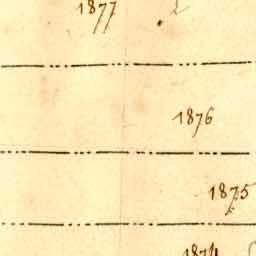 1877
1876
1875
1874